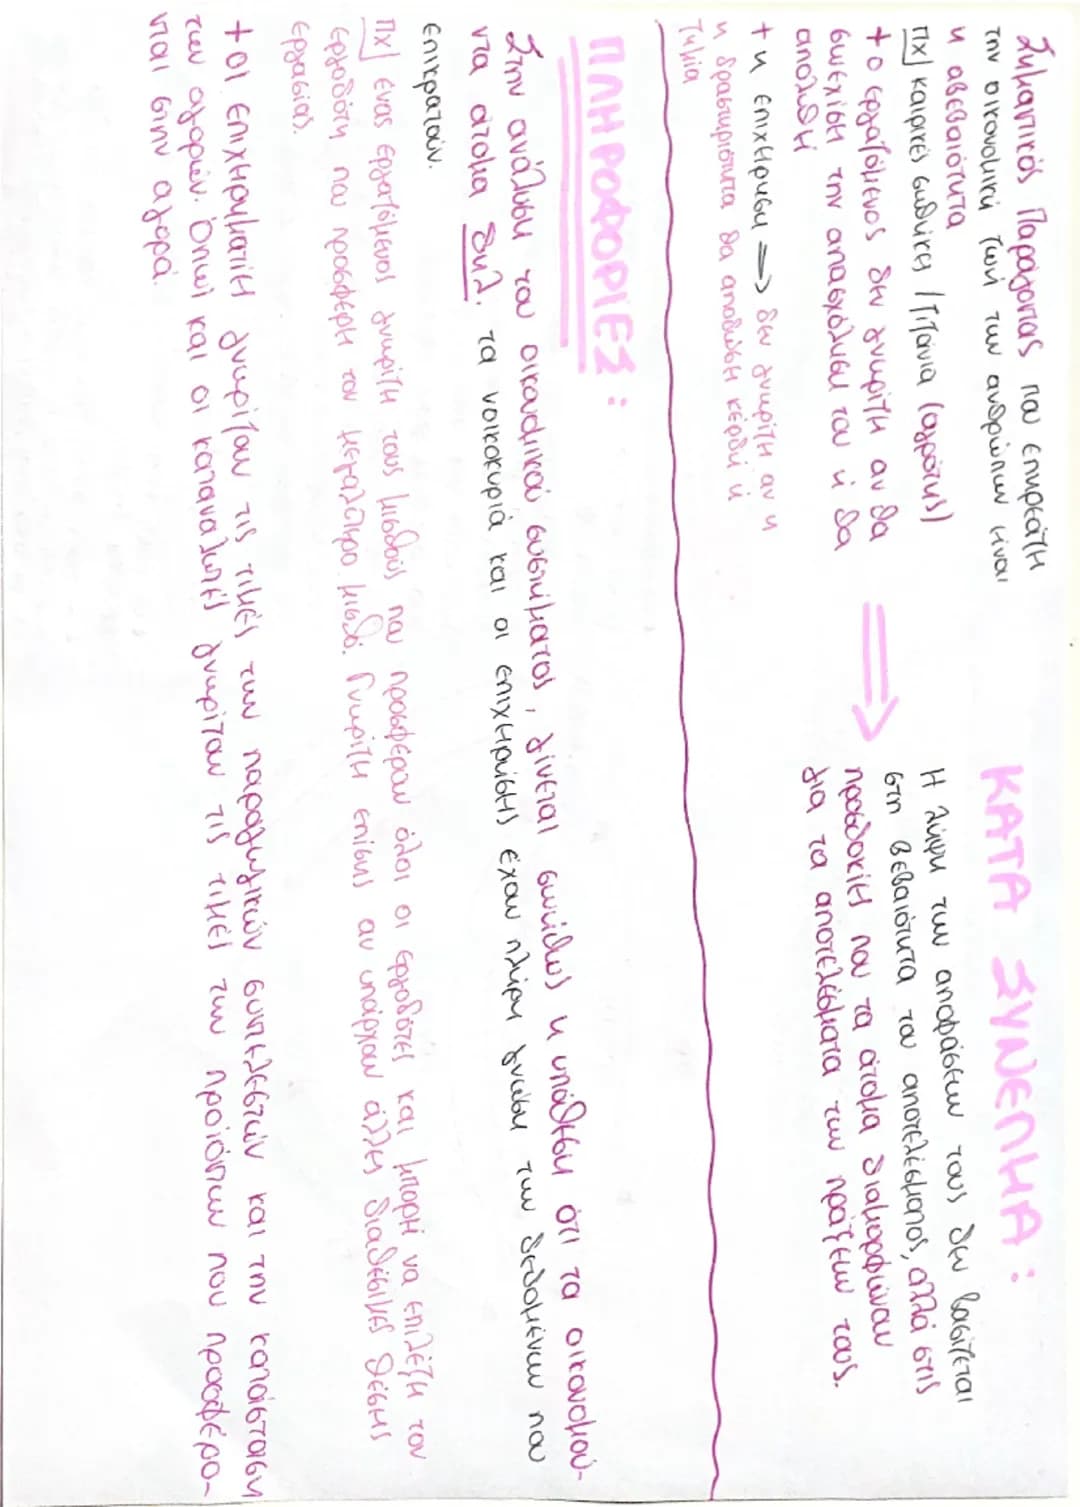 Σημαντικός Παράγοντας που επηρεάζει
την οικονομική ζωή των ανθρώπων είναι
η αβεβαιότητα
πχ| καιρικές συνθήκες / Τιτάνια (αγρότης)
+ ο εργαζόμενος δεν γνωρίζει αν θα
συνεχίσει την απασχόληση του ή θα
απολυθεί
+ η επιχείρηση => δεν γνωρίζει αν η
η δραστηριότητα θα αποδώσει κέρδη ή
ζημία
ΚΑΤΑ ΣΥΝΕΠΕΙΑ :
Η λήψη των αποφάσεων τους δεν βασίζεται
στη βεβαιότητα του αποτελέσματος, αλλά στις
προσδοκίες που τα άτομα διαμορφώνουν
για τα αποτελέσματα των πράξεων τους.
ΠΛΗΡΟΦΟΡΙΕΣ :
Στην ανάλυση του οικονομικού συστήματος, γίνεται συνήθως η υπόθεση ότι τα οικονομού-
ντα άτομα δηλ. τα νοικοκυριά και οι επιχειρήσεις έχουν πλήρη γνώση των δεδομένων που
επικρατούν.
πχ| ένας εργαζόμενος γνωρίζει τους μισθούς που προσφέρουν όλοι οι εργοδότες και μπορεί να επιλέξει τον
εργοδότη που προσφέρει τον μεγαλύτερο μισθό. Γνωρίζει επίσης αν υπάρχουν άλλες διαθέσιμες θέσεις
εργασίας.
+ οι επιχειρηματίες γνωρίζουν τις τιμές των παραγωγικών συντελεστών και την κατάσταση
των αγορών. Όπως και οι καταναλωτές γνωρίζουν τις τιμές των προϊόντων που προσφέρο-
νται στην αγορά.